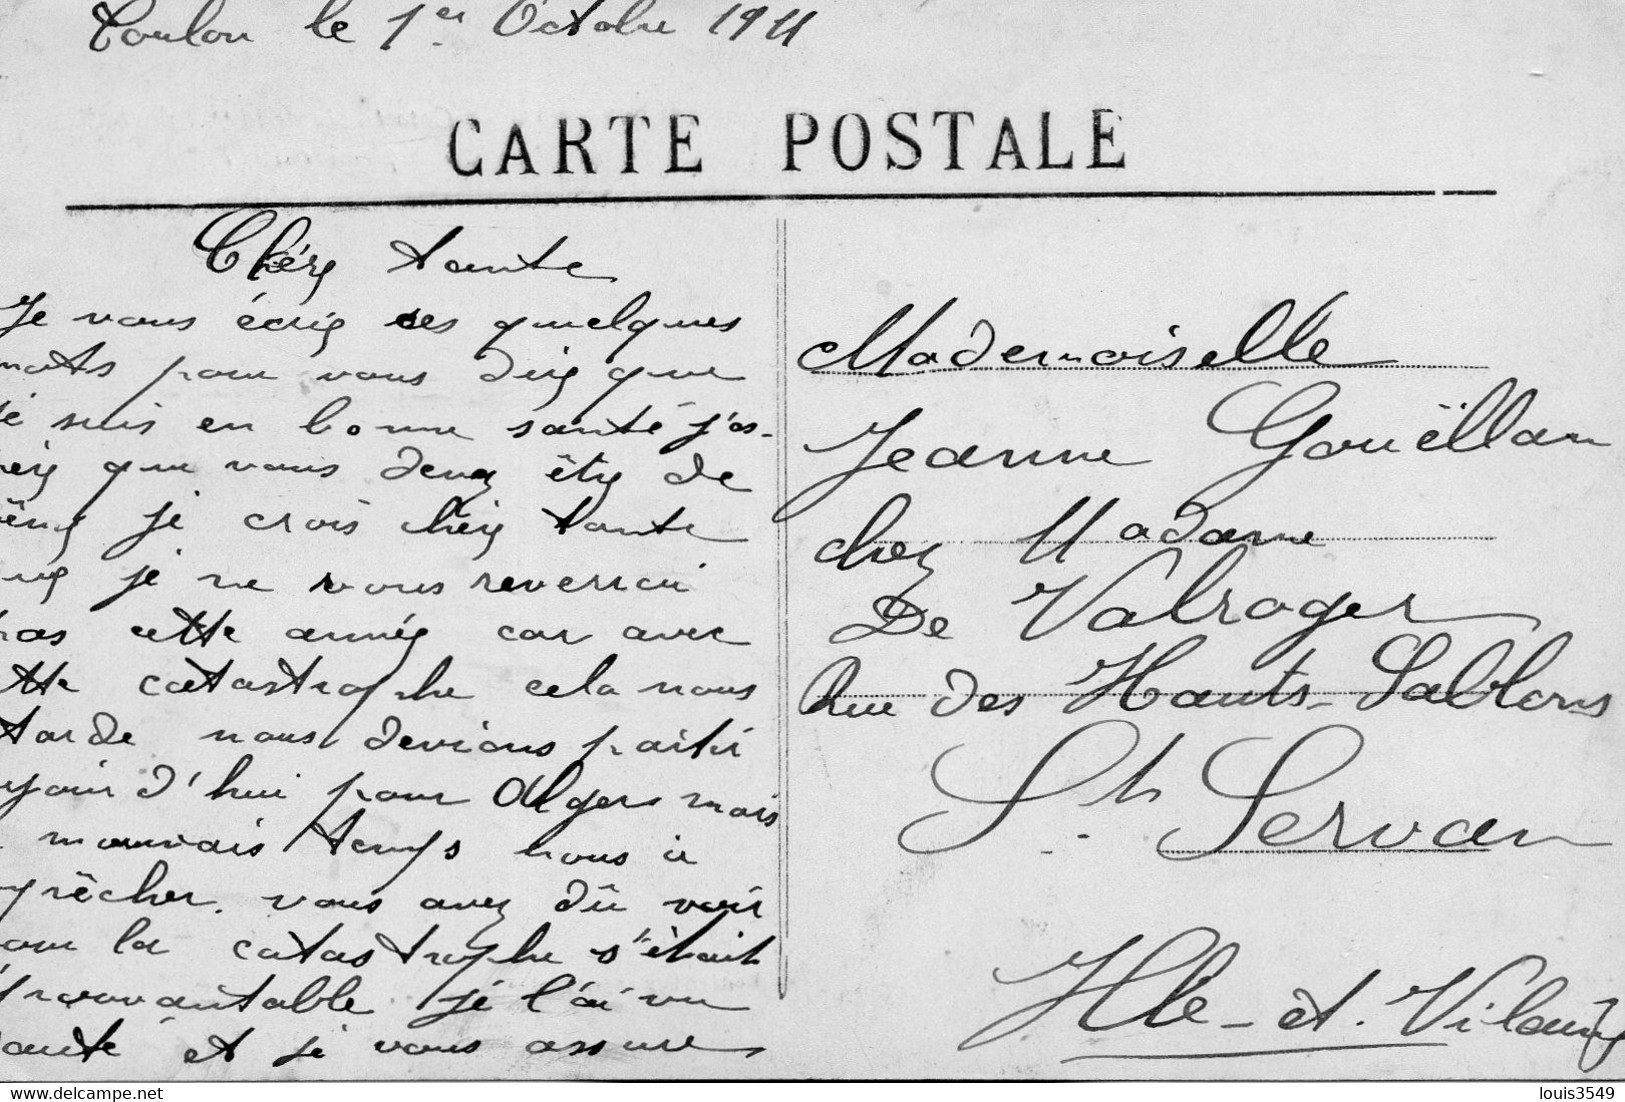 Toulon le 1er Octobre 1911
CARTE POSTALE
Chère tante
Je vous écris ces quelques
mots pour vous dire que
je suis en bonne santé j'es-
père que vous devez être de
même je crois chère tante
que je ne vous reverrai
pas cette année car avec
cette catastrophe cela nous
tarde nous devions partir
aujourd'hui pour Alger mais
mauvais temps nous a
empêcher. vous avez dû voir
la catastrophe s'était
épouvantable je l'ai vu
sauté et je vous assure
Mademoiselle
Jeanne Gouëllan
chez Madame
De Valroger
Rue des Hauts-Sablons
St. Servan
Ille-et-Vilaine
louis3549